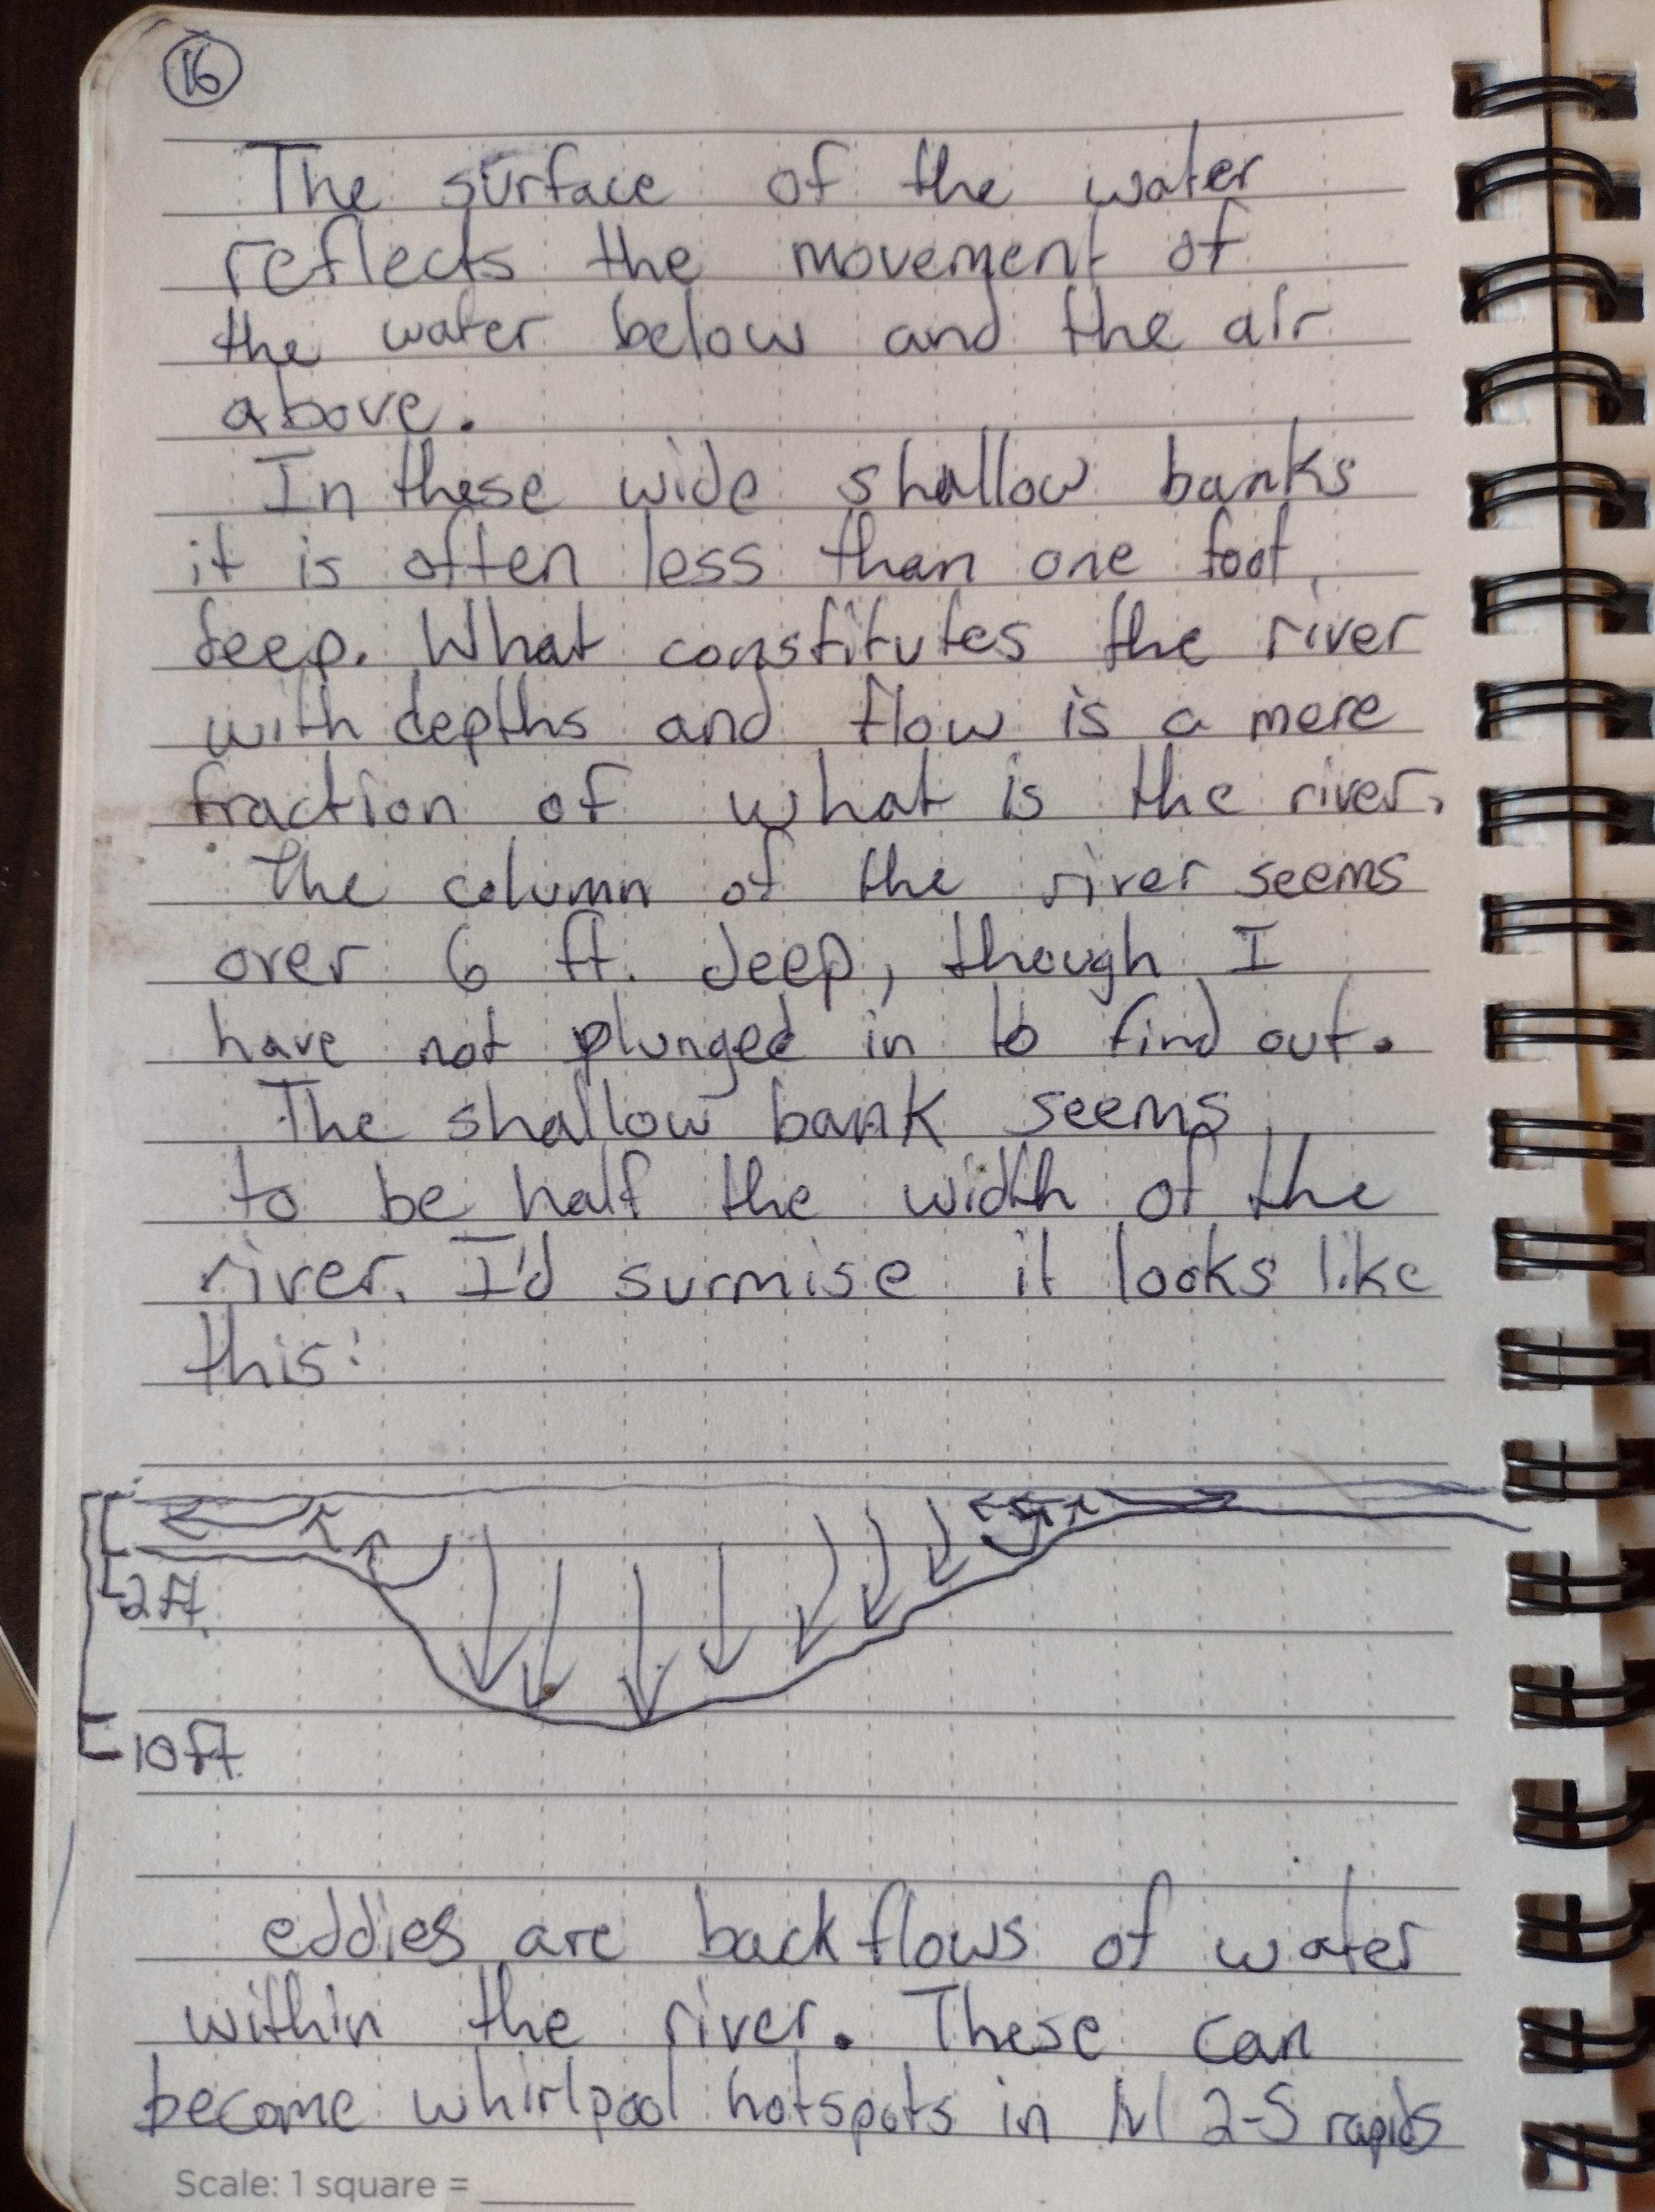 16
The surface of the water
reflects the movement of
the water below and the air
above.
In these wide shallow banks
it is often less than one foot
deep. What constitutes the river
with depths and flow is a mere
fraction of what is the river.
The column of the river seems
over 6 ft. deep, though I
have not plunged in to find out.
The shallow bank seems
to be half the width of the
river. I'd surmise it looks like
this:
2ft.
10ft.
eddies are backflows of water
within the river. These can
become whirlpool hotspots in lvl 2-5 rapids
Scale: 1 square =